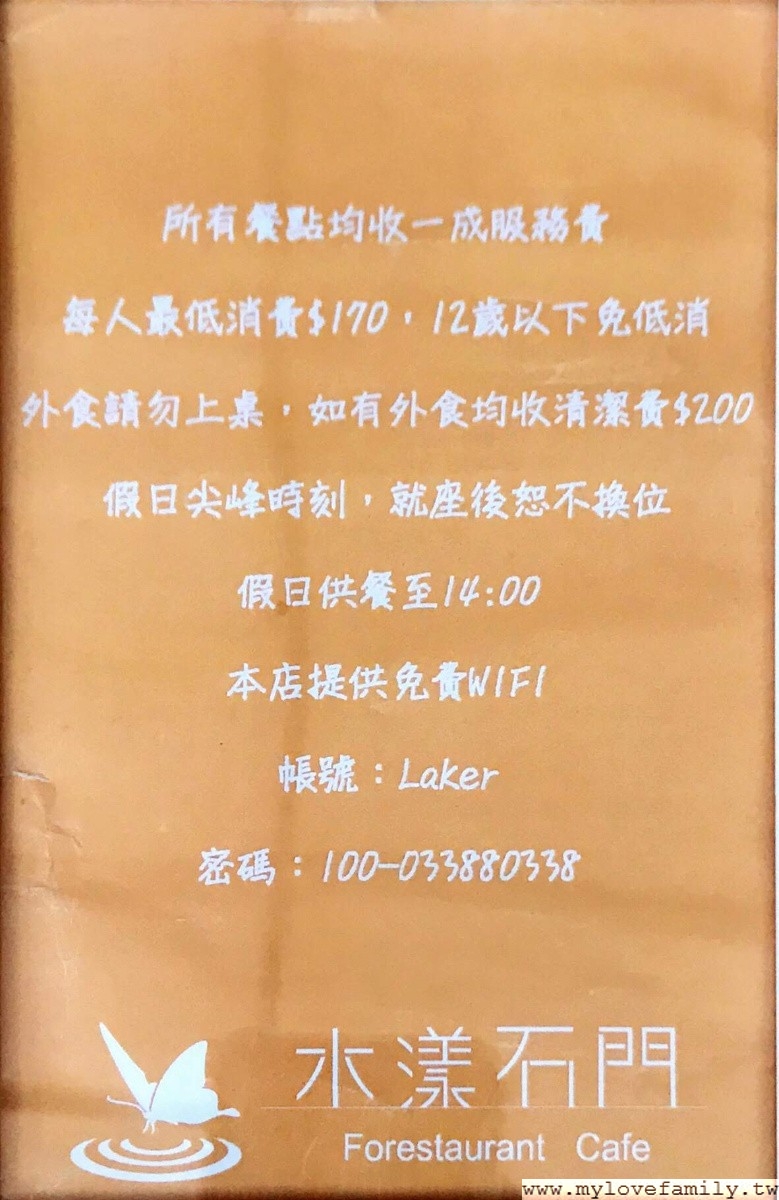 所有餐點均收一成服務費
每人最低消費$170，12歲以下免低消
外食請勿上桌，如有外食均收清潔費$200
假日尖峰時刻，就座後恕不換位
假日供餐至14:00
本店提供免費WIFI
帳號：Laker
密碼：100-033880338
水漾石門
Forestaurant Cafe
www.mylovefamily.tw